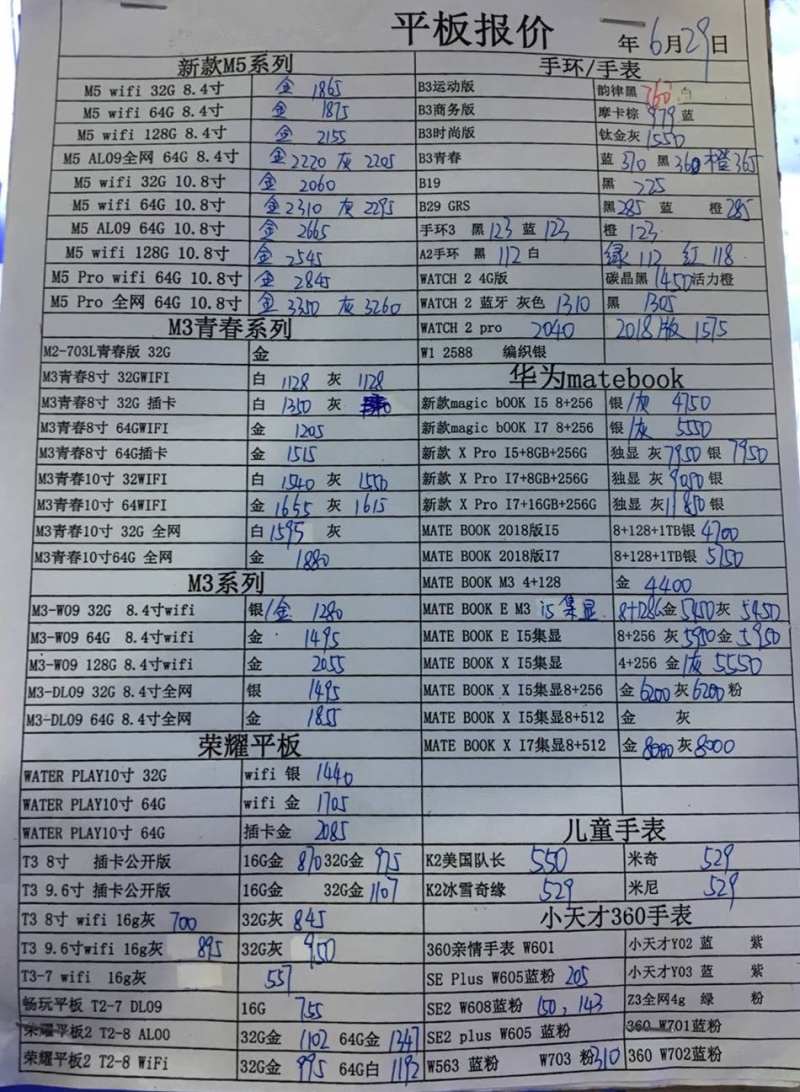 平板报价 年6月29日
新款M5系列
M5 wifi 32G 8.4寸 金 1865
M5 wifi 64G 8.4寸 金 1875
M5 wifi 128G 8.4寸 金 2155
M5 AL09全网 64G 8.4寸 金 2220 灰 2205
M5 wifi 32G 10.8寸 金 2060
M5 wifi 64G 10.8寸 金 2310 灰 2295
M5 AL09 64G 10.8寸 金 2665
M5 wifi 128G 10.8寸 金 2545
M5 Pro wifi 64G 10.8寸 金 2845
M5 Pro 全网 64G 10.8寸 金 3350 灰 3260
M3青春系列
M2-703L青春版 32G 金
M3青春8寸 32GWIFI 白 1128 灰 1128
M3青春8寸 32G 插卡 白 1350 灰
M3青春8寸 64GWIFI 金 1205
M3青春8寸 64G插卡 金 1515
M3青春10寸 32WIFI 白 1540 灰 1550
M3青春10寸 64WIFI 金 1655 灰 1615
M3青春10寸 32G 全网 白 1595 灰
M3青春10寸64G 全网 金 1880
M3系列
M3-W09 32G 8.4寸wifi 银/金 1280
M3-W09 64G 8.4寸wifi 金 1495
M3-W09 128G 8.4寸wifi 金 2055
M3-DL09 32G 8.4寸全网 银 1495
M3-DL09 64G 8.4寸全网 金 1855
荣耀平板
WATER PLAY10寸 32G wifi 银 1440
WATER PLAY10寸 64G wifi 金 1705
WATER PLAY10寸 64G 插卡金 2085
T3 8寸 插卡公开版 16G金 870 32G金 975
T3 9.6寸 插卡公开版 16G金 32G金 1107
T3 8寸 wifi 16g灰 700 32G灰 845
T3 9.6寸wifi 16g灰 895 32G灰 950
T3-7 wifi 16g灰 557
畅玩平板 T2-7 DL09 16G 755
荣耀平板2 T2-8 AL00 32G金 1102 64G金 1347
荣耀平板2 T2-8 WiFi 32G金 995 64G白 1192
手环/手表
B3运动版 韵律黑 760 白
B3商务版 摩卡棕 979 蓝
B3时尚版 钛金灰 1550
B3青春 蓝 370 黑 360 橙 365
B19 黑 225
B29 GRS 黑 285 蓝 橙 285
手环3 黑 123 蓝 123 橙 123
A2手环 黑 112 白 绿 112 红 118
WATCH 2 4G版 碳晶黑 1450 活力橙
WATCH 2 蓝牙 灰色 1310 黑 1305
WATCH 2 pro 2040 2018版 1575
W1 2588 编织银
华为matebook
新款magic bOOK I5 8+256 银/灰 4750
新款magic bOOK I7 8+256 银/灰 5550
新款 X Pro I5+8GB+256G 独显 灰 7950 银 7950
新款 X Pro I7+8GB+256G 独显 灰 9050 银
新款 X Pro I7+16GB+256G 独显 灰 11850 银
MATE BOOK 2018版I5 8+128+1TB银 4700
MATE BOOK 2018版I7 8+128+1TB银 5750
MATE BOOK M3 4+128 金 4400
MATE BOOK E M3 i5 集显 8+128G 金 5450 灰 5450
MATE BOOK E I5集显 8+256 灰 5950 金 5950
MATE BOOK X I5集显 4+256 金/灰 5550
MATE BOOK X I5集显8+256 金 6200 灰 6200 粉
MATE BOOK X I5集显8+512 金 灰
MATE BOOK X I7集显8+512 金 8000 灰 8000
儿童手表
K2美国队长 550 米奇 529
K2冰雪奇缘 529 米尼 529
小天才360手表
360亲情手表 W601 小天才Y02 蓝 紫
SE Plus W605蓝粉 205 小天才Y03 蓝 紫
SE2 W608蓝粉 150、143 Z3全网4g 绿 粉
SE2 plus W605 蓝粉 360 W701蓝粉
W563 蓝粉 W703 粉 310 360 W702蓝粉